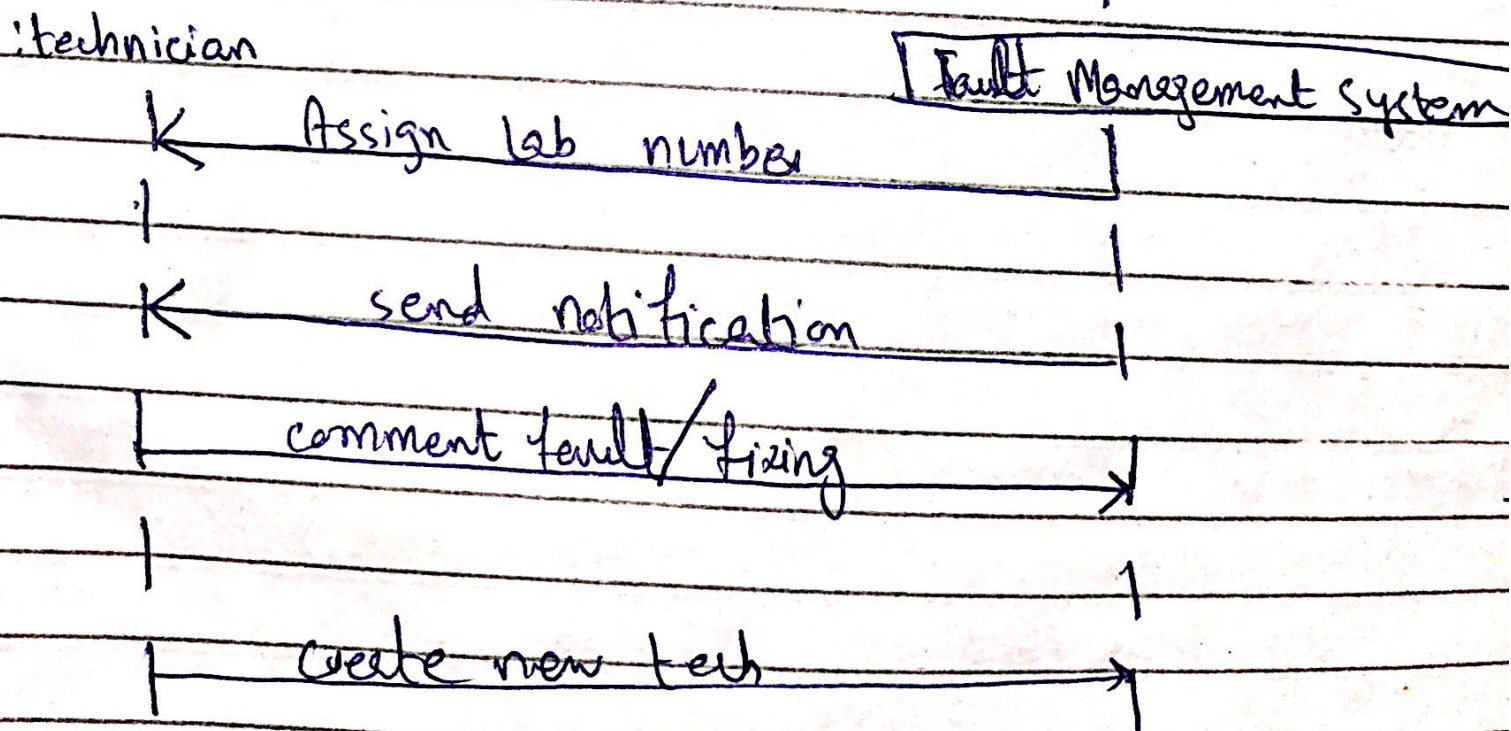 :technician
Fault Management System
Assign Lab number
send notification
comment fault/fixing
create new tech